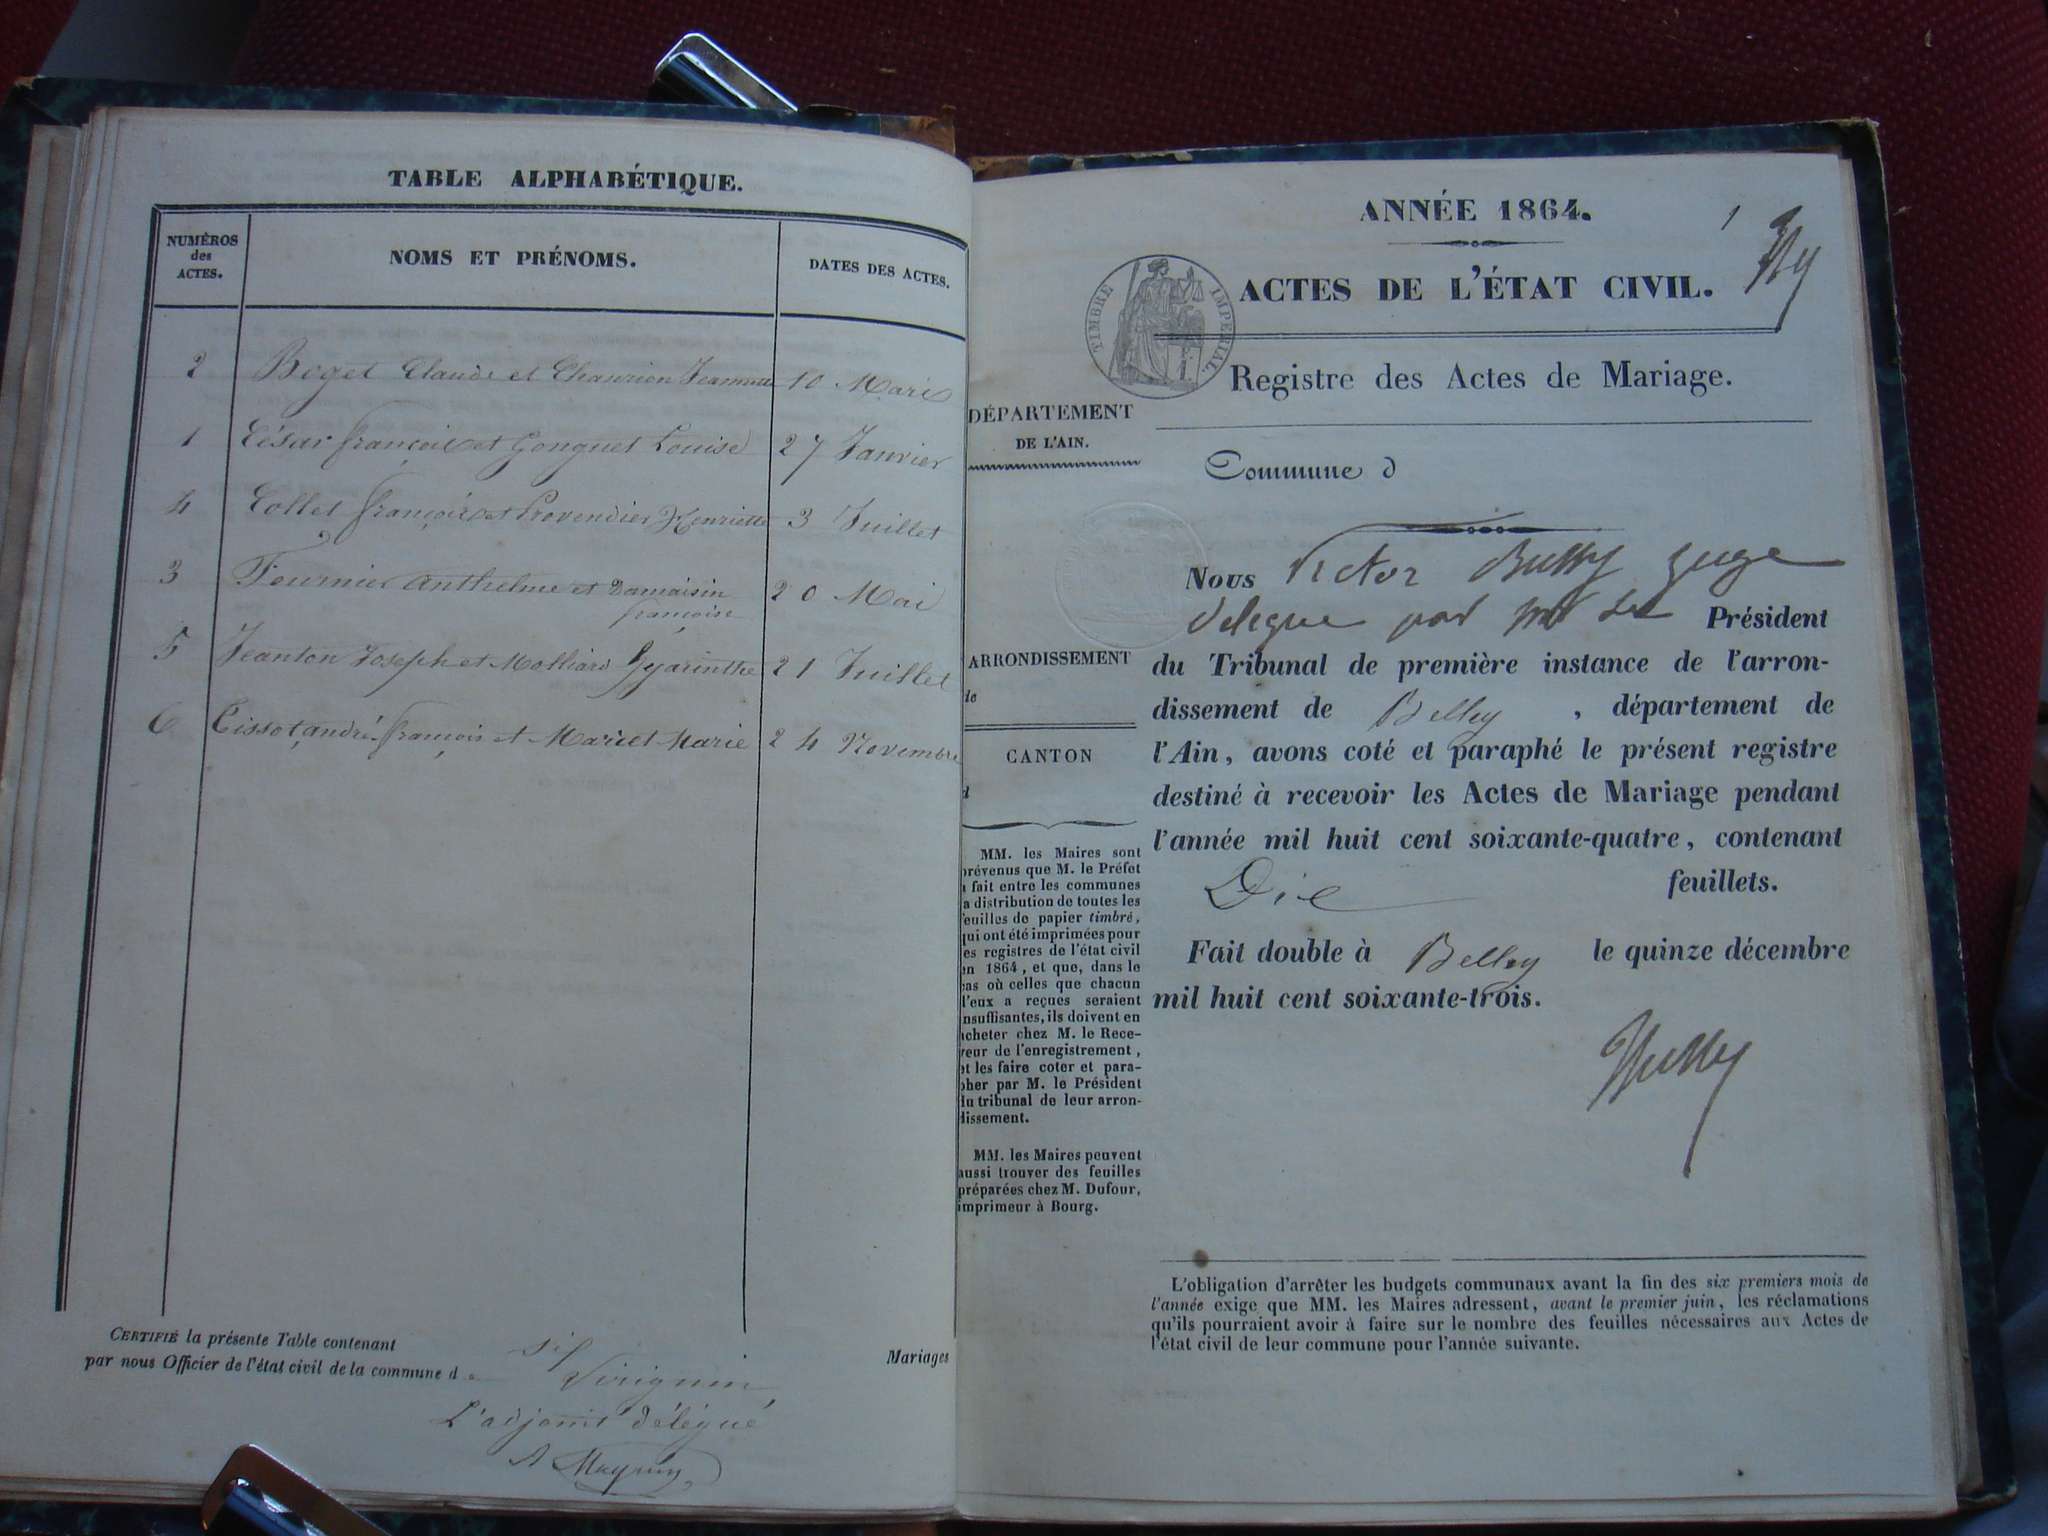 TABLE ALPHABÉTIQUE.
NUMÉROS
des
ACTES.
NOMS ET PRÉNOMS.
DATES DES ACTES.
2 Boget Claude et Jeannette 10 Mars
1 César François et Gonguet Louise 27 Janvier
4 Collet françois et Provendier Henriette 3 Juillet
3 Fournier Anthelme et Damaisin
françoise 20 Mai
5 Jeanton Joseph et Molliard Hyacinthe 21 Juillet
6 andré françois et Marie 24 Novembre
CERTIFIÉ la présente Table contenant six Mariages
par nous Officier de l'état civil de la commune d e Virignin
L'adjoint délégué
ANNÉE 1864.
1
ACTES DE L'ÉTAT CIVIL.
TIMBRE IMPÉRIAL.
Registre des Actes de Mariage.
DÉPARTEMENT
DE L'AIN.
Commune d
ARRONDISSEMENT
de
CANTON
d
MM. les Maires sont
prévenus que M. le Préfet
a fait entre les communes
la distribution de toutes les
feuilles de papier timbré,
qui ont été imprimées pour
les registres de l'état civil
en 1864, et que, dans le
cas où celles que chacun
d'eux a reçues seraient
insuffisantes, ils doivent en
acheter chez M. le Rece-
veur de l'enregistrement,
et les faire coter et para-
pher par M. le Président
du tribunal de leur arron-
dissement.
MM. les Maires peuvent
aussi trouver des feuilles
préparées chez M. Dufour,
imprimeur à Bourg.
Nous Victor Bussy Juge
délégué par Mr le Président
du Tribunal de première instance de l'arron-
dissement de Belley, département de
l'Ain, avons coté et paraphé le présent registre
destiné à recevoir les Actes de Mariage pendant
l'année mil huit cent soixante-quatre, contenant
Dix feuillets.
Fait double à Belley le quinze décembre
mil huit cent soixante-trois.
Bussy
L'obligation d'arrêter les budgets communaux avant la fin des six premiers mois de
l'année exige que MM. les Maires adressent, avant le premier juin, les réclamations
qu'ils pourraient avoir à faire sur le nombre des feuilles nécessaires aux Actes de
l'état civil de leur commune pour l'année suivante.